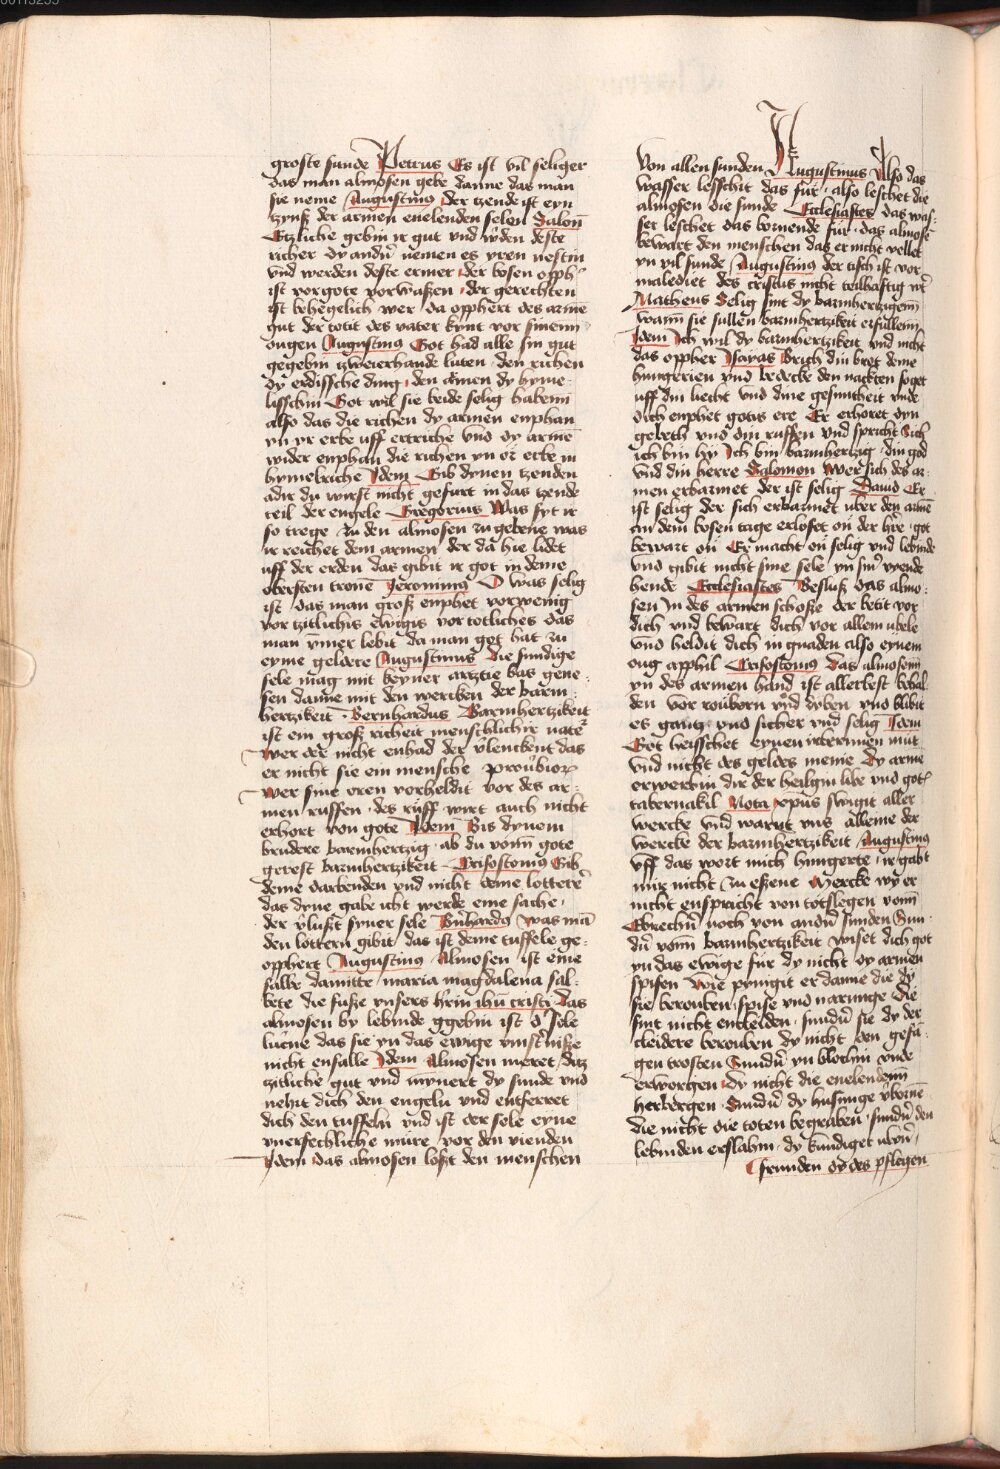 groste sunde Petrus Es ist vil seliger
das man almosen gebe danne das man
sie neme Augustinus Der tzende ist eyn
tzynß der armen enelenden selen Salon̄
Etzliche gebin ir gut vnd w̓den deste
richer dy and̓n nemen es yren nestin
vnd werden deste ermer der bosen opph̓
ist vor gote vorwaßen der gerechten
ist behegelich wer da opphert des arme̅
gut der totit des vater kynt vor sinenn
ougen Augustinus Got had alle sin gut
gegebin tzweierhande luten den richen
dy erdissche ding den armen dy hyme⸗
lisschin Got wil sie beide selig habenn
also das die richen dy armen enphan
yn yr erbe uff ertriche vnd dy arme̅
wider enphan die richen yn ir erbe in
hymelriche Idem Gib dynen tzenden
adir du wirst nicht gefurt in das tzende
teil der engele Gregorius Was syt ir
so trege zu den almosen zu gebene was
ir reichet dem armen der da hie lidet
uff der erden das gibit ir got in deme
obersten trone Jeronimus O was selig
ist das man groß enphet vor wenig
vor tzitlichis ewigis vor totliches das
man ymer lebit da man got hat zu
eyme geldere Augustinus die sundige
sele mag mit keyner arcztie bas gene⸗
sen danne mit den wercken der barm⸗
hertzikeit Bernhardus Barmhertzikeit
ist ein groß richeit menschlichir nature
wer der nicht enhad der vlenckent das
er nicht sie ein mensche prouerbiorum
wer sine oren vorheldit vor des ar⸗
men ruffen des ruff wirt auch nicht
erhort von gote Idem Bis dynem
brudere barmhertzig ab du vonn gote
gerest barmhertzikeit Crisostomus Gib
deme darbenden vnd nicht deme lottere
das dyne gabe icht werde eine sache
der v̓lust syner sele Bern̄hardus was ma̅
den lottern gibit das ist deme tuffele ge⸗
opphert Augustinus Almosen ist eine
salbe damitte maria magdalena sal⸗
bete die fuße vnsers h̓rin ih̅u cristi Das
almosen by lebinde gegebin ist d̓ sele
lucerne das sie yn das ewige vinst̓niße
nicht enfalle Idem Almosen meret das
zitliche gut vnd mynert dy sunde vnd
nehit dich den engeln vnd entferret
dich den tuffeln vnd ist der sele eyne
vnersechliche mure vor den vienden
Idem das almosen loßt den menschen
von allen sunden Augustinus Also das
wasser lesschit das fur also leschet die
almosen die sunde Ecclesiastes das was⸗
ser leschet das bornende fur das almose̅
bewart den menschen das er nicht vellet
yn vil sunde Augustinus der tisch ist vor
maledict des cristus nicht teilhaftig w̓t
Matheus Selig sint dy barmhertzigenn
wann sie sullen barmhertzikeit erfullenn
Idem Ich wil dy barmhertzikeit vnd nicht
das oppher Isayas Brich din brot deme
hungerien vnd bedecke den nackten so get
uff din liecht vnd dine gesuntheit vnde
dich enphet gotis ere Er erhoret dyn
gebeth vnd din ruffen vnd spricht Sich
ich bin hy Ich bin barmhertzig din god
vnd din herre Salomon Wer sich des ar⸗
men erbarmet der ist selig Dauid Er
ist selig der sich erbarmet uber den arme̅
an dem bosen tage erloset on der h̓re got
bewart on Er macht on selig vnd lebinde
vnd gibit nicht sine sele yn sin̓ vyende
hende Ecclesiastes Besluß das almo⸗
sen in des armen schoße der betit vor
dich vnd bewart dich vor allem ubele
vnd heldit dich in gnaden also eynem
oug apphil Crisostomus Das almosenn
yn des armen hand ist allerbest behal⸗
den vor rouborn vnd dyben vnd blibit
es gantz vnd sicher vnd selig Idem
Got heisschet eynen irbermien mut
vnd nicht des geldes menie Dy arme̅
erwerbin die der heilgin libe vnd gotes
tabernakil Nota xp̄us swigit aller
wercke vnd warnt vns alleme der
wercke der barmhertzikeit Augustinus
uff das wort mich hungerte ir gabt
mir nicht zu eßene Mercke wy er
nicht enspricht von totslegen vonn
Ebrechn̓ noch von and̓n sunden Sun⸗
d̓n vonn barmhertzikeit wiset dich got
yn das ewige fur dy nicht dy armen
spisen Wie pynigit er danne die dy
sie berouben spise vnd narunge Die
sint nicht encleiden sund̓n sie dy der
cleidere berouben dy nicht den gefa⸗
gen trosten Sund̓n yn blochin vnde
erworgen Dy nicht die enelendenn
herbergen Sund̓n dy husunge v̓borne̅
die nicht die toten begraben sund̓n den
lebinden erslahin dy kundiget uben̓
frunden dy des pflegen